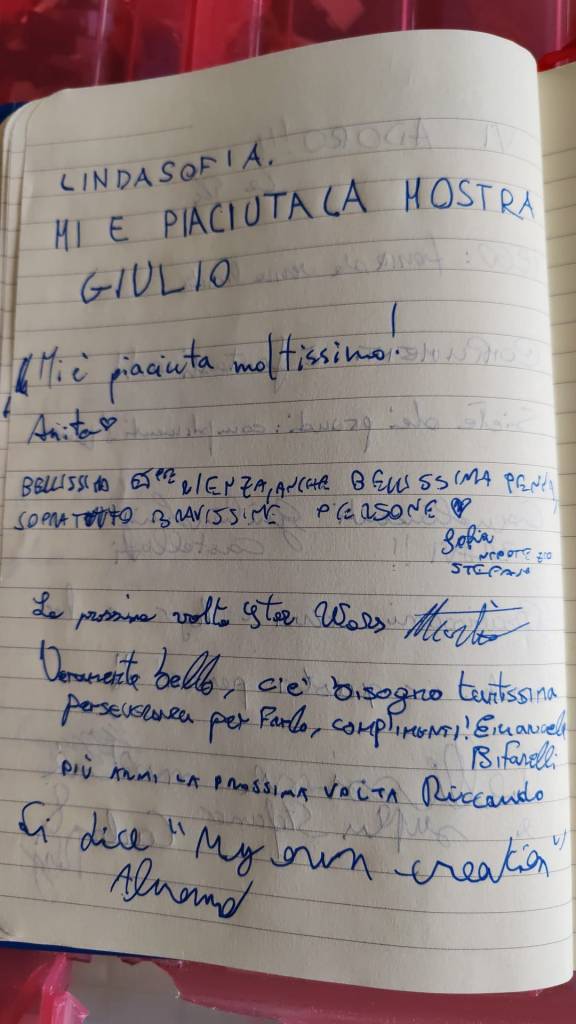 LINDASOFIA.
MI E PIACIUTA LA MOSTRA
GIULIO
Mi è piaciuta moltissimo!
Anita
BELLISSIMA ESPERIENZA, ANCHE BELLISSIMA
SOPRATUTTO BRAVISSIME PERSONE
Sofia
NIPOTE ZIO
STEFANO
La prossima volta Star Wars
Veramente bello, cie' bisogno tantissima
perseveranza per Farlo, COMPLIMENTI! Emanuele
Bifarelli
PIÙ ARMI LA PROSSIMA VOLTA Riccardo
Si dice "My own creation"